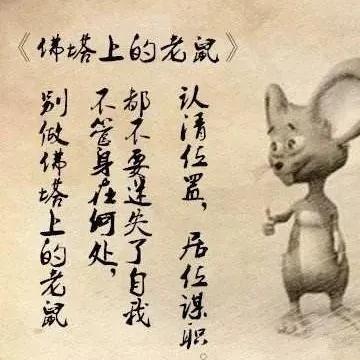 《佛塔上的老鼠》
认清位置，居位谋职。
都不要迷失了自我
不管身在何处，
别做佛塔上的老鼠